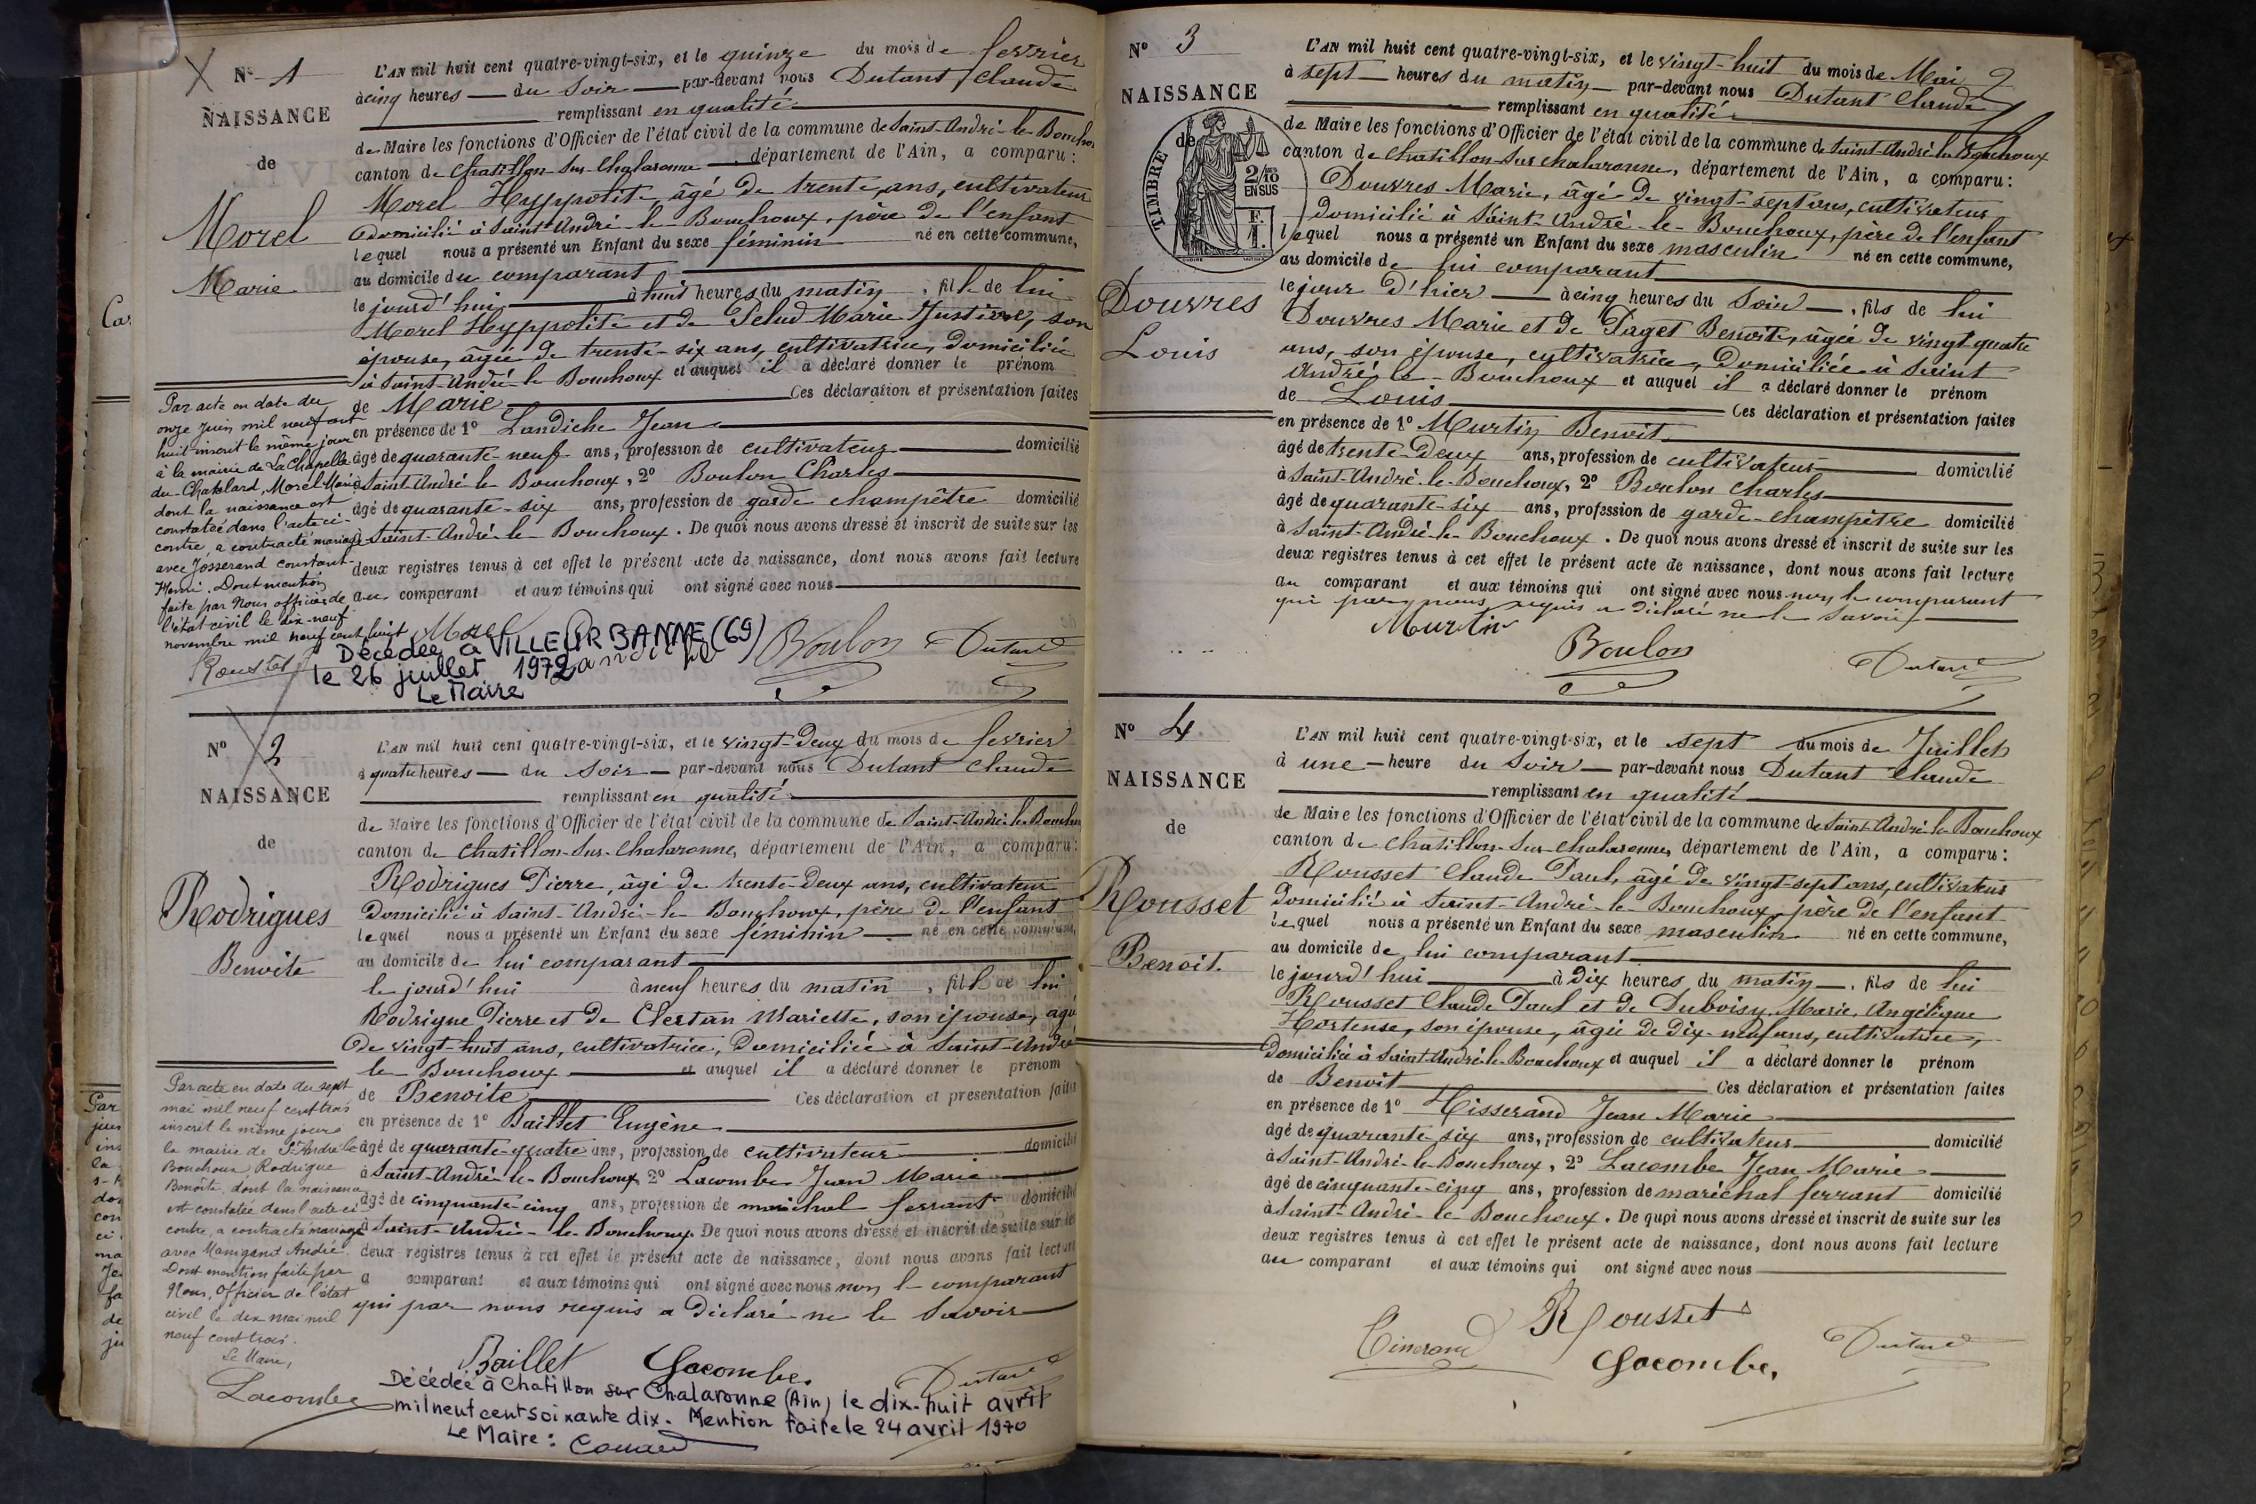 N° 1
NAISSANCE
de
Morel
Marie
L'AN mil huit cent quatre-vingt-six, et le quinze du mois de fevrier
à cinq heures du Soir par-devant nous Dutant Claude
remplissant en qualité
de Maire les fonctions d'Officier de l'état civil de la commune de Saint-André-le-Bouchoux
canton de Chatillon-Sur-Chalaronne département de l'Ain, a comparu :
Morel Hyppolite, âgé de trente ans, cultivateur
domicilié à Saint-André-le-Bouchoux, père de l'enfant
lequel nous a présenté un Enfant du sexe féminin né en cette commune,
au domicile du comparant
le jourd'hui à huit heures du matin, fille de lui
Morel Hyppolite et de Marie Justine, son
épouse, âgée de trente-six ans, cultivatrice, domiciliée
à Saint-André-le-Bouchoux et auquel il a déclaré donner le prénom
de Marie Ces déclaration et présentation faites
en présence de 1° Landiche Jean
âgé de quarante-neuf ans, profession de cultivateur domicilié
à Saint-André-le-Bouchoux, 2° Boulon Charles
âgé de quarante-six ans, profession de garde champêtre domicilié
à Saint-André-le-Bouchoux. De quoi nous avons dressé et inscrit de suite sur les
deux registres tenus à cet effet le présent acte de naissance, dont nous avons fait lecture
au comparant et aux témoins qui ont signé avec nous
Par acte en date du
onze juin mil neuf cent
huit inscrit le même jour
à la mairie de La Chapelle
du-Chatelard, Morel Marie
dont la naissance est
constatée dans l'acte ci-
contre, a contracté mariage
avec Josserand Constant
Henri. Dont mention
faite par Nous officier de
l'état civil le dix-neuf
novembre mil neuf cent vingt
Rousset
Morel Landiche Boulon Dutant
Décédée à VILLEURBANNE (69)
le 26 juillet 1972
Le Maire
N° 2
NAISSANCE
de
Rodrigues
Benoite
L'AN mil huit cent quatre-vingt-six, et le vingt-deux du mois de fevrier
à quatre heures du Soir par-devant nous Dutant Claude
remplissant en qualité
de Maire les fonctions d'Officier de l'état civil de la commune de Saint-André-le-Bouchoux
canton de Chatillon-Sur-Chalaronne, département de l'Ain, a comparu :
Rodrigues Pierre, âgé de trente-deux ans, cultivateur
domicilié à Saint-André-le-Bouchoux, père de l'enfant
lequel nous a présenté un Enfant du sexe féminin né en cette commune,
au domicile de lui comparant
le jourd'hui à neuf heures du matin, fille de lui
Rodrigue Pierre et de Clertan Mariette, son épouse, âgée
de vingt-huit ans, cultivatrice, domiciliée à Saint-André
le Bouchoux et auquel il a déclaré donner le prénom
de Benoite Ces déclaration et présentation faites
en présence de 1° Baillet Eugène
âgé de quarante-quatre ans, profession de cultivateur domicilié
à Saint-André-le-Bouchoux 2° Lacombe Jean Marie
âgé de cinquante-cinq ans, profession de maréchal ferrant domicilié
à Saint-André-le-Bouchoux. De quoi nous avons dressé et inscrit de suite sur les
deux registres tenus à cet effet le présent acte de naissance, dont nous avons fait lecture
a comparant et aux témoins qui ont signé avec nous non le comparant
qui par nous requis a déclaré ne le Savoir
Par acte en date du sept
mai mil neuf cent trois
inscrit le même jour à
la mairie de St André le
Bouchoux Rodrigue
Benoîte, dont la naissance
est constatée dans l'acte ci-
contre, a contracté mariage
avec Manigant André.
Dont mention faite par
Nous, Officier de l'état
civil le dix mai mil
neuf cent trois.
Le Maire,
Lacombe
Baillet Lacombe Dutant
Décédée à Chatillon sur Chalaronne (Ain) le dix-huit avril
mil neuf cent soixante dix. Mention faite le 24 avril 1970
Le Maire :
N° 3
NAISSANCE
de
TIMBRE
2/10
EN SUS
Douvres
Louis
L'AN mil huit cent quatre-vingt-six, et le vingt-huit du mois de Mai
à sept heures du matin par-devant nous Dutant Claude
remplissant en qualité
de Maire les fonctions d'Officier de l'état civil de la commune de Saint-André-le-Bouchoux
canton de Chatillon-Sur-Chalaronne, département de l'Ain, a comparu :
Douvres Marie, âgé de vingt-sept ans, cultivateur
domicilié à Saint-André-le-Bouchoux, père de l'enfant
lequel nous a présenté un Enfant du sexe masculin né en cette commune,
au domicile de lui comparant
le jour d'hier à cinq heures du Soir, fils de lui
Douvres Marie et de Paget Benoite, âgée de vingt-quatre
ans, son épouse, cultivatrice, domiciliée à Saint
André-le-Bouchoux et auquel il a déclaré donner le prénom
de Louis Ces déclaration et présentation faites
en présence de 1° Murtin Benoit
âgé de trente-deux ans, profession de cultivateur domicilié
à Saint-André-le-Bouchoux, 2° Boulon Charles
âgé de quarante-six ans, profession de garde-champêtre domicilié
à Saint-André-le-Bouchoux. De quoi nous avons dressé et inscrit de suite sur les
deux registres tenus à cet effet le présent acte de naissance, dont nous avons fait lecture
au comparant et aux témoins qui ont signé avec nous non le comparant
qui par nous requis a déclaré ne le Savoir
Murtin Boulon Dutant
N° 4
NAISSANCE
de
Rousset
Benoit.
L'AN mil huit cent quatre-vingt-six, et le sept du mois de Juillet
à une heure du Soir par-devant nous Dutant Claude
remplissant en qualité
de Maire les fonctions d'Officier de l'état civil de la commune de Saint-André-le-Bouchoux
canton de Chatillon-Sur-Chalaronne, département de l'Ain, a comparu :
Rousset Claude Paul, âgé de vingt-sept ans, cultivateur
domicilié à Saint-André-le-Bouchoux, père de l'enfant
lequel nous a présenté un Enfant du sexe masculin né en cette commune,
au domicile de lui comparant
le jourd'hui à dix heures du matin, fils de lui
Rousset Claude Paul et de Duboisy Marie Angélique
Hortense, son épouse, âgée de dix-neuf ans, cultivatrice,
domiciliée à Saint-André-le-Bouchoux et auquel il a déclaré donner le prénom
de Benoit Ces déclaration et présentation faites
en présence de 1° Tisserand Jean Marie
âgé de quarante-six ans, profession de cultivateur domicilié
à Saint-André-le-Bouchoux, 2° Lacombe Jean Marie
âgé de cinquante-cinq ans, profession de maréchal ferrant domicilié
à Saint-André-le-Bouchoux. De quoi nous avons dressé et inscrit de suite sur les
deux registres tenus à cet effet le présent acte de naissance, dont nous avons fait lecture
au comparant et aux témoins qui ont signé avec nous
Rousset
Lacombe Dutant